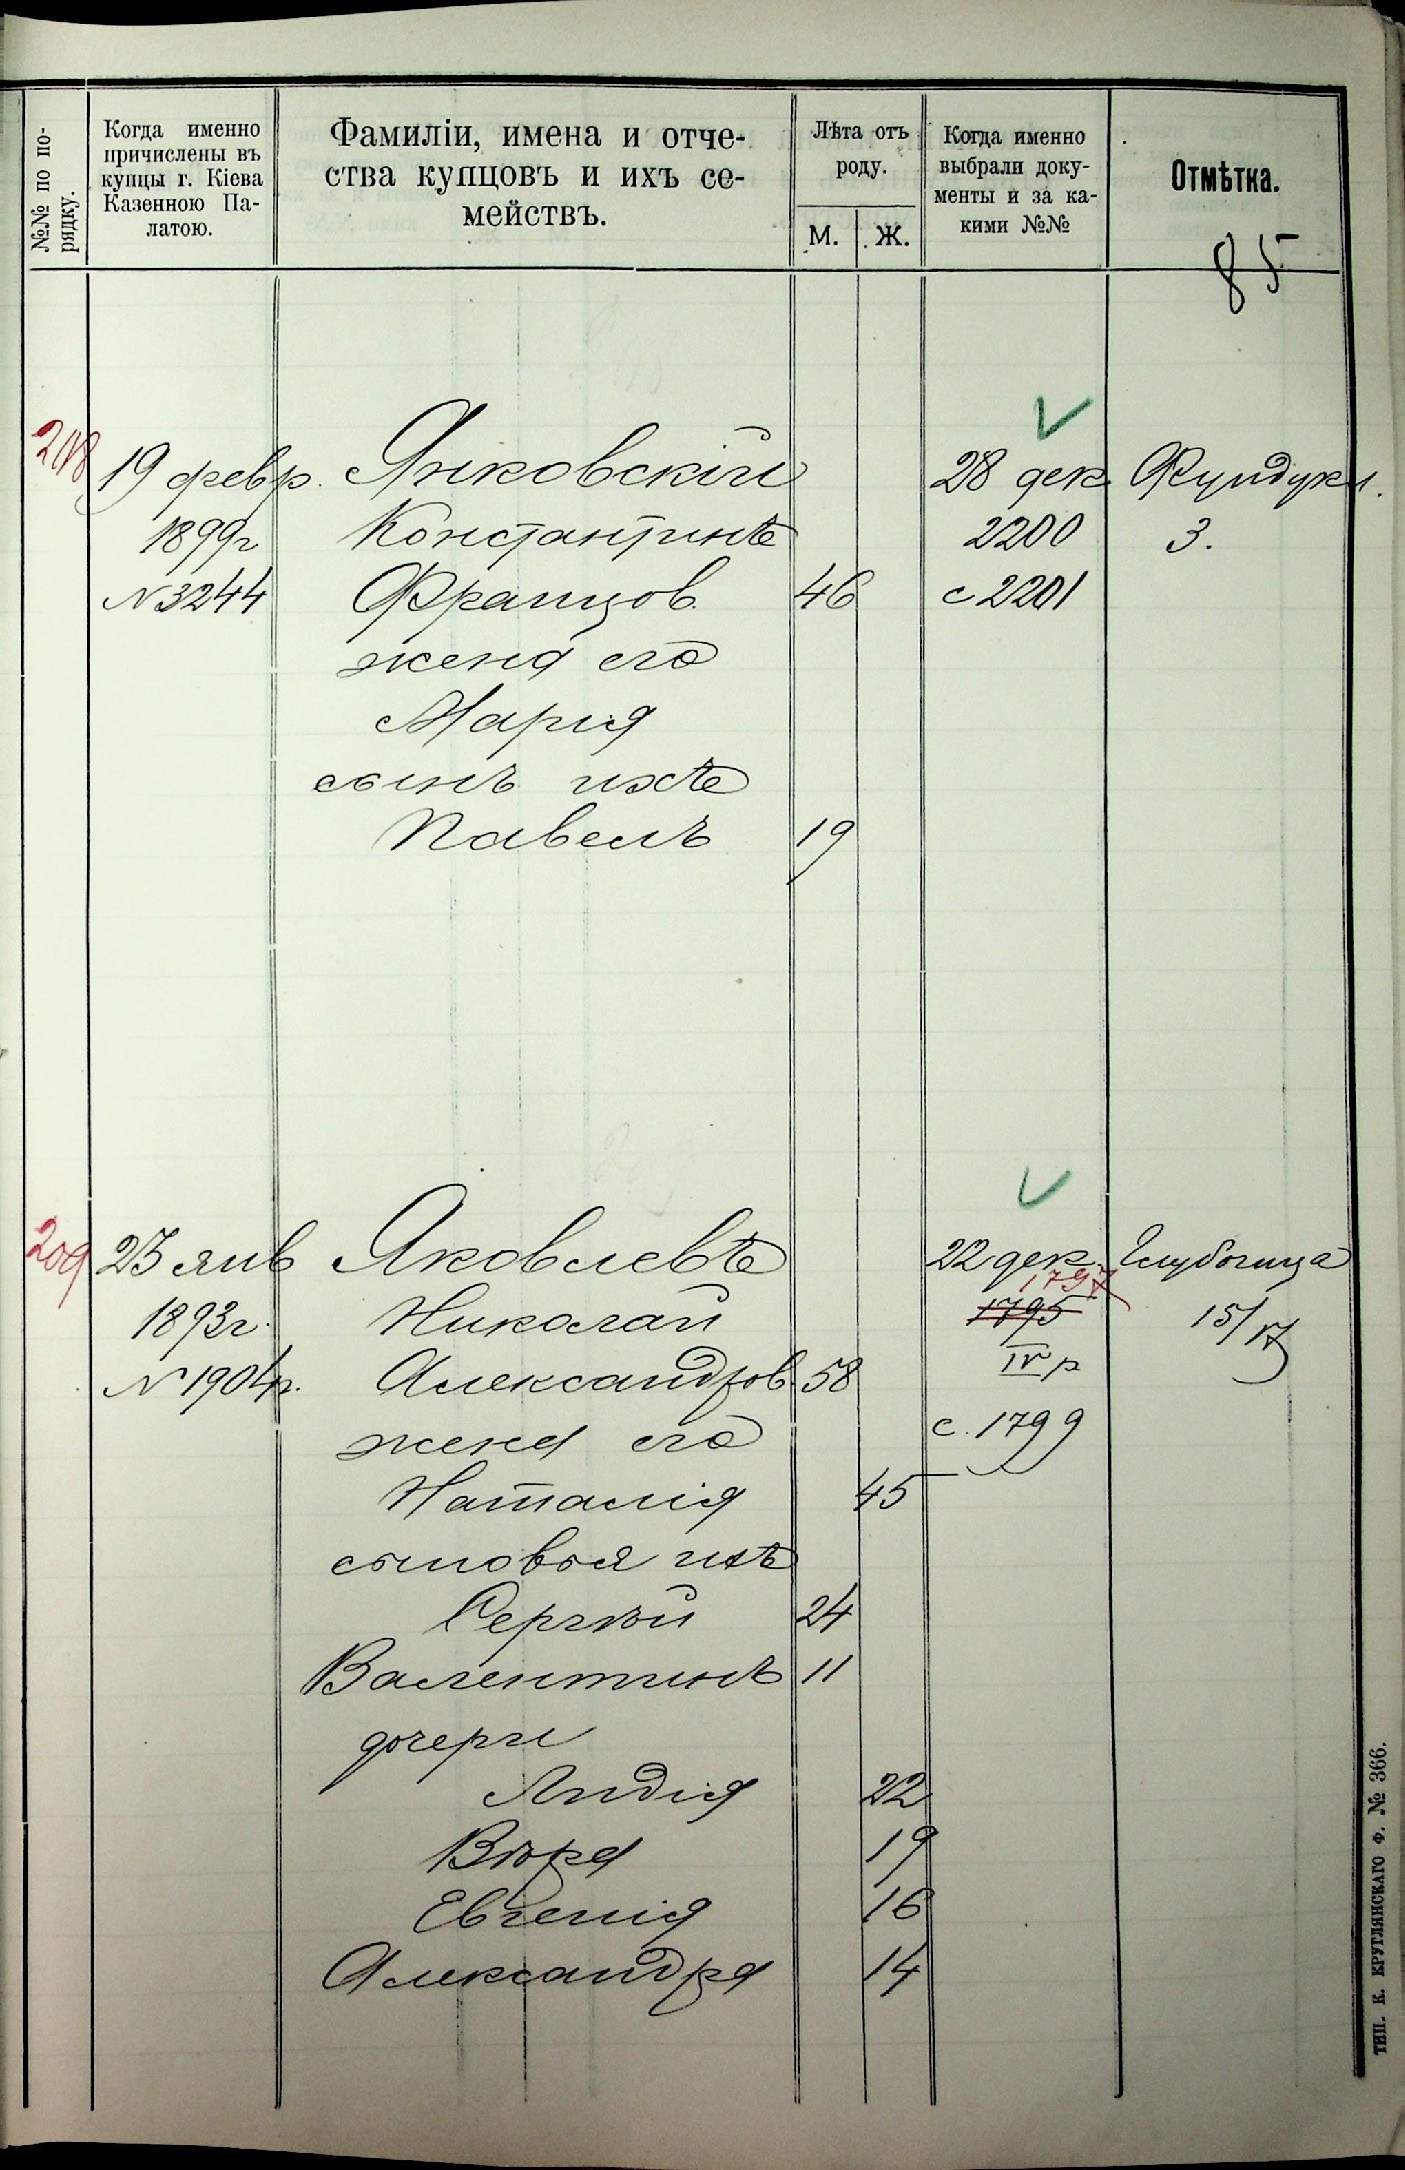 №№ по по-
рядку.
Когда именно
причислены въ
купцы г. Кіева
Казенною Па-
латою.
Фамиліи, имена и отче-
ства купцовъ и ихъ се-
мействъ.
Лѣта отъ
роду.
М. Ж.
Когда именно
выбрали доку-
менты и за ка-
кими №№
Отмѣтка.
85
208 19 февр. Янковскій 28 дек. Фундукл.
1899г Константинъ 2200 3.
№3244 Францов. 46 с 2201
жена его
Марія
сынъ ихъ
Павелъ 19
209 23 янв Яковлевъ 22 дек. Глубочица
1797
1893г. Николай 1795 15/17
№ 1904г. Александров. 58 IV р
жена его с. 1799
Наталія 45
сыновья ихъ
Сергѣй 24
Валентинъ 11
дочери
Лидія 22
Вѣра 19
Евгенія 16
Александра 14
ТИП. К. КРУГЛЯНСКАГО Ф. № 366.